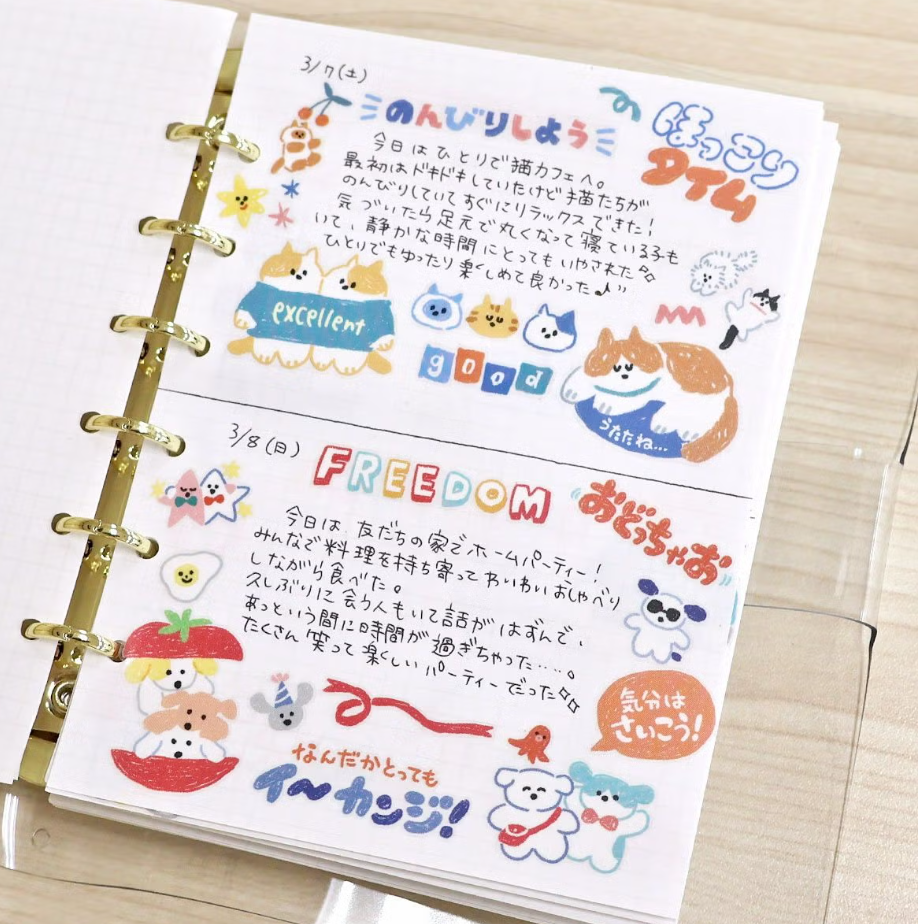 3/7(土)
のんびりしよう
ほっこり
タイム
今日はひとりで猫カフェへ。
最初はドキドキしていたけど猫たちが
のんびりしていてすぐにリラックスできた！
気づいたら足元で丸くなって寝ている子も
いて、静かな時間にとってもいやされた
ひとりでもゆったり楽しめて良かった♪
excellent
good
うたたね...
3/8(日)
FREEDOM
おどっちゃお
今日は、友だちの家でホームパーティー！
みんなで料理を持ち寄ってわいわいおしゃべり
しながら食べた。
久しぶりに会う人もいて話がはずんで、
あっという間に時間が過ぎちゃった……。
たくさん笑って楽しいパーティーだった
気分は
さいこう！
なんだかとっても
イ〜カンジ！